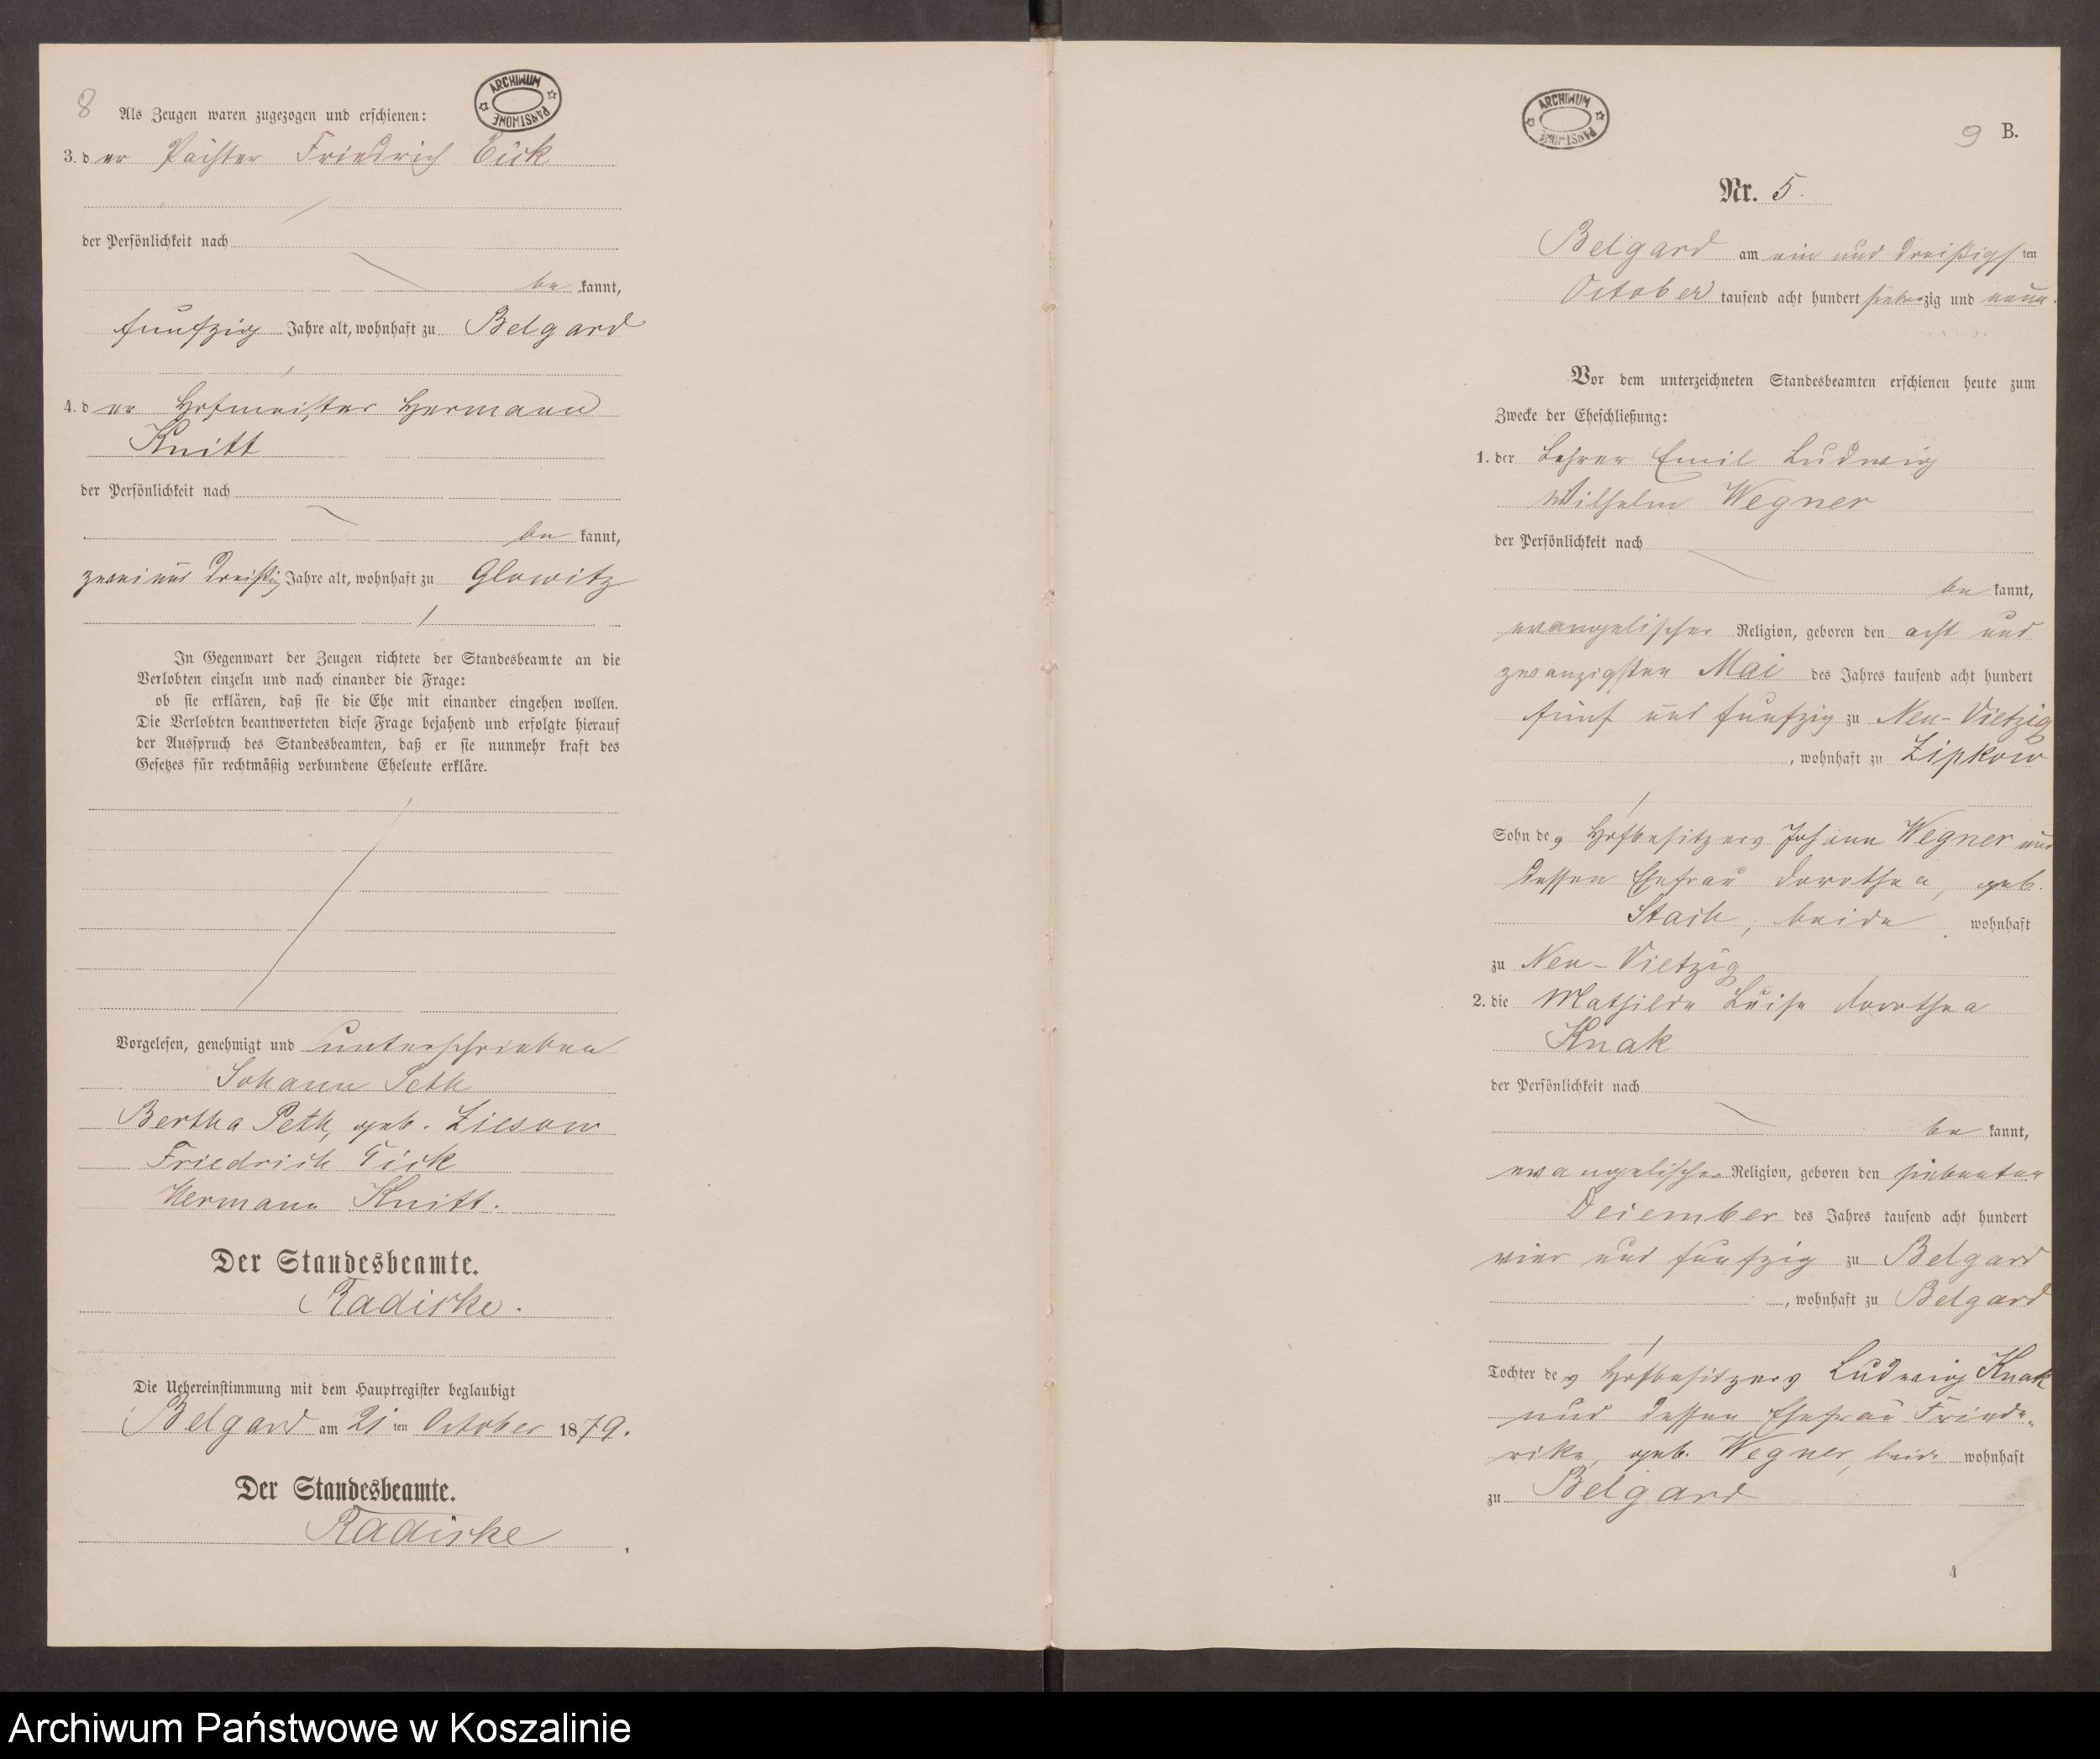 8
Als Zeugen waren zugezogen und erschienen:
ARCHIWUM PAŃSTWOWE
3. der Pächter Friedrich Eick
der Persönlichkeit nach
be kannt,
funfzig Jahre alt, wohnhaft zu Belgard
4. der Hofmeister Hermann
Knitt
der Persönlichkeit nach
be kannt,
zwei und dreißig Jahre alt, wohnhaft zu Glowitz
In Gegenwart der Zeugen richtete der Standesbeamte an die
Verlobten einzeln und nach einander die Frage:
ob sie erklären, daß sie die Ehe mit einander eingehen wollen.
Die Verlobten beantworteten diese Frage bejahend und erfolgte hierauf
der Ausspruch des Standesbeamten, daß er sie nunmehr kraft des
Gesetzes für rechtmäßig verbundene Eheleute erkläre.
Vorgelesen, genehmigt und unterschrieben
Johann Peth
Bertha Peth, geb. Ziesow
Friedrich Eick
Hermann Knitt.
Der Standesbeamte.
Radiske.
Die Uebereinstimmung mit dem Hauptregister beglaubigt
Belgard am 21 ten October 1879.
Der Standesbeamte.
Radiske
ARCHIWUM PAŃSTWOWE
9 B.
Nr. 5.
Belgard am ein und dreißigsten
October tausend acht hundert siebenzig und neun.
Vor dem unterzeichneten Standesbeamten erschienen heute zum
Zwecke der Eheschließung:
1. der Lehrer Emil Ludwig
Wilhelm Wegner
der Persönlichkeit nach
be kannt,
evangelischer Religion, geboren den acht und
zwanzigsten Mai des Jahres tausend acht hundert
fünf und funfzig zu Neu-Vietzig
, wohnhaft zu Zipkow
Sohn des Hofbesitzers Johann Wegner und
dessen Ehefrau Dorothea, geb.
beide wohnhaft
zu Neu-Vietzig
2. die Mathilde Luise Dorothea
Knak
der Persönlichkeit nach
be kannt,
evangelischer Religion, geboren den siebenten
December des Jahres tausend acht hundert
vier und funfzig zu Belgard
, wohnhaft zu Belgard
Tochter des Hofbesitzers Ludwig Knak
und dessen Ehefrau Friede-
rike, geb. Wegner, beide wohnhaft
zu Belgard
4
Archiwum Państwowe w Koszalinie